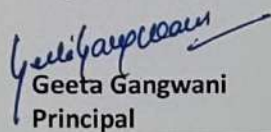 Geeta Gangwani
Principal